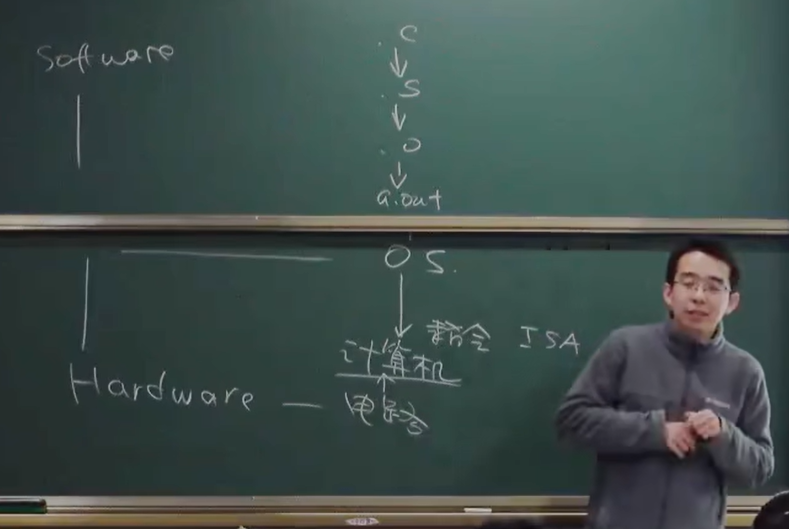 Software
.c
.s
.o
a.out
OS.
指令 ISA
计算机
Hardware — 电路